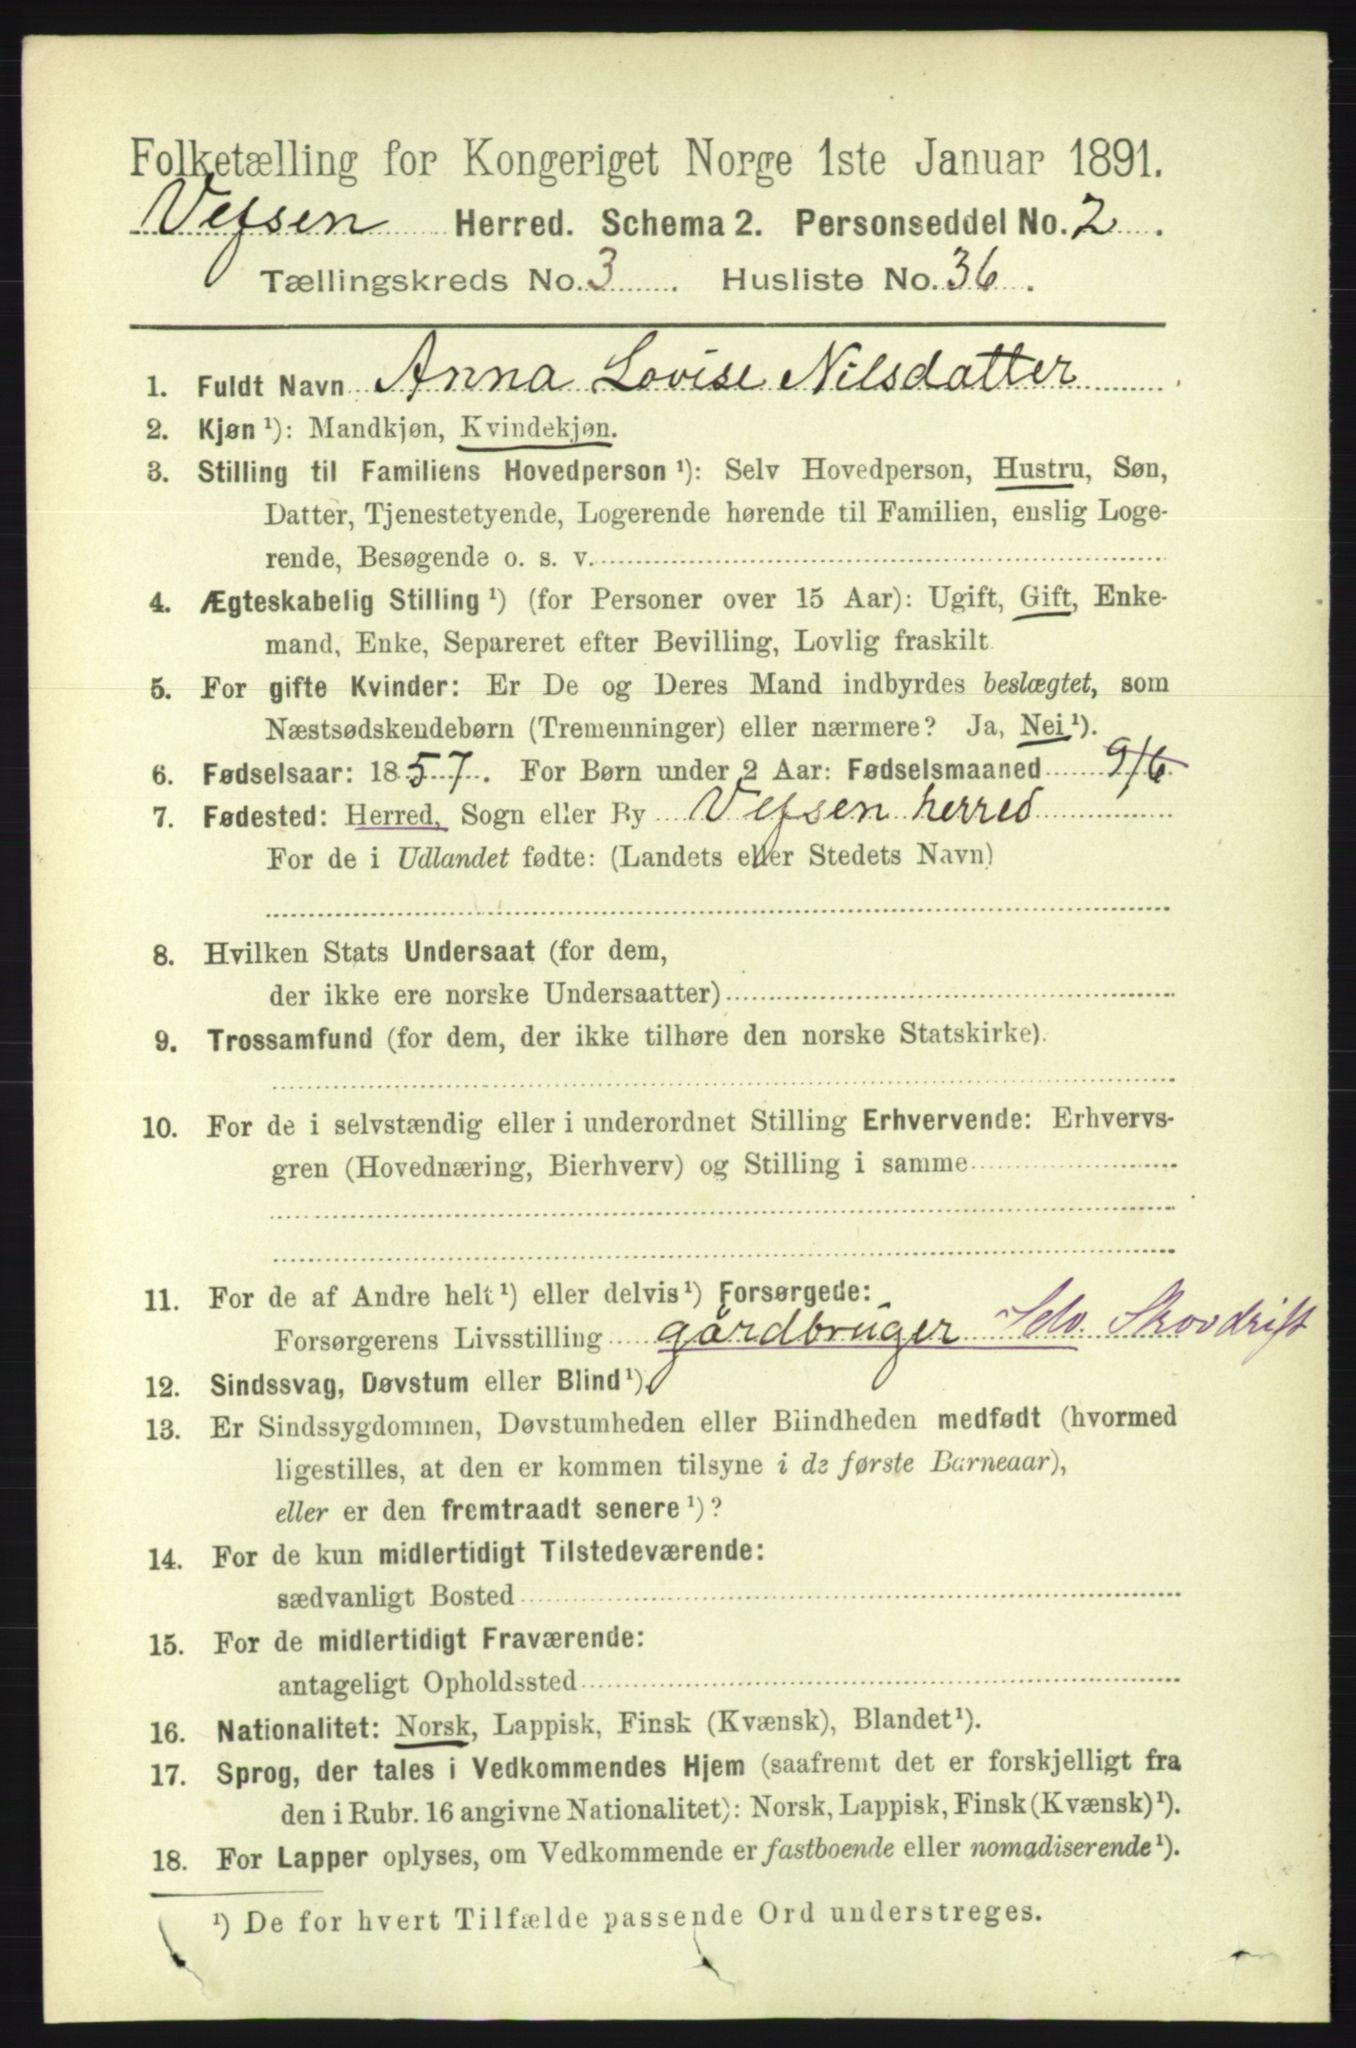 Folketælling for Kongeriget Norge 1ste Januar 1891.
Vefsen Herred. Schema 2. Personseddel No. 2.
Tællingskreds No. 3. Husliste No. 36.
1. Fuldt Navn Anna Lovise Nilsdatter
2. Kjøn ¹): Mandkjøn, Kvindekjøn.
3. Stilling til Familiens Hovedperson ¹): Selv Hovedperson, Hustru, Søn,
Datter, Tjenestetyende, Logerende hørende til Familien, enslig Loge-
rende, Besøgende o. s. v.
4. Ægteskabelig Stilling ¹) (for Personer over 15 Aar): Ugift, Gift, Enke-
mand, Enke, Separeret efter Bevilling, Lovlig fraskilt.
5. For gifte Kvinder: Er De og Deres Mand indbyrdes beslægtet, som
Næstsødskendebørn (Tremenninger) eller nærmere? Ja, Nei ¹).
6. Fødselsaar: 1857. For Børn under 2 Aar: Fødselsmaaned 9/6
7. Fødested: Herred, Sogn eller By Vefsen herred
For de i Udlandet fødte: (Landets eller Stedets Navn)
8. Hvilken Stats Undersaat (for dem,
der ikke ere norske Undersaatter)
9. Trossamfund (for dem, der ikke tilhøre den norske Statskirke).
10. For de i selvstændig eller i underordnet Stilling Erhvervende: Erhvervs-
gren (Hovednæring, Bierhverv) og Stilling i samme
11. For de af Andre helt ¹) eller delvis ¹) Forsørgede:
Forsørgerens Livsstilling gårdbruger Selv. Skovdrift
12. Sindssvag, Døvstum eller Blind ¹).
13. Er Sindssygdommen, Døvstumheden eller Blindheden medfødt (hvormed
ligestilles, at den er kommen tilsyne i de første Barneaar),
eller er den fremtraadt senere ¹)?
14. For de kun midlertidigt Tilstedeværende:
sædvanligt Bosted
15. For de midlertidigt Fraværende:
antageligt Opholdssted
16. Nationalitet: Norsk, Lappisk, Finsk (Kvænsk), Blandet ¹).
17. Sprog, der tales i Vedkommendes Hjem (saafremt det er forskjelligt fra
den i Rubr. 16 angivne Nationalitet): Norsk, Lappisk, Finsk (Kvænsk) ¹).
18. For Lapper oplyses, om Vedkommende er fastboende eller nomadiserende ¹).
¹) De for hvert Tilfælde passende Ord understreges.